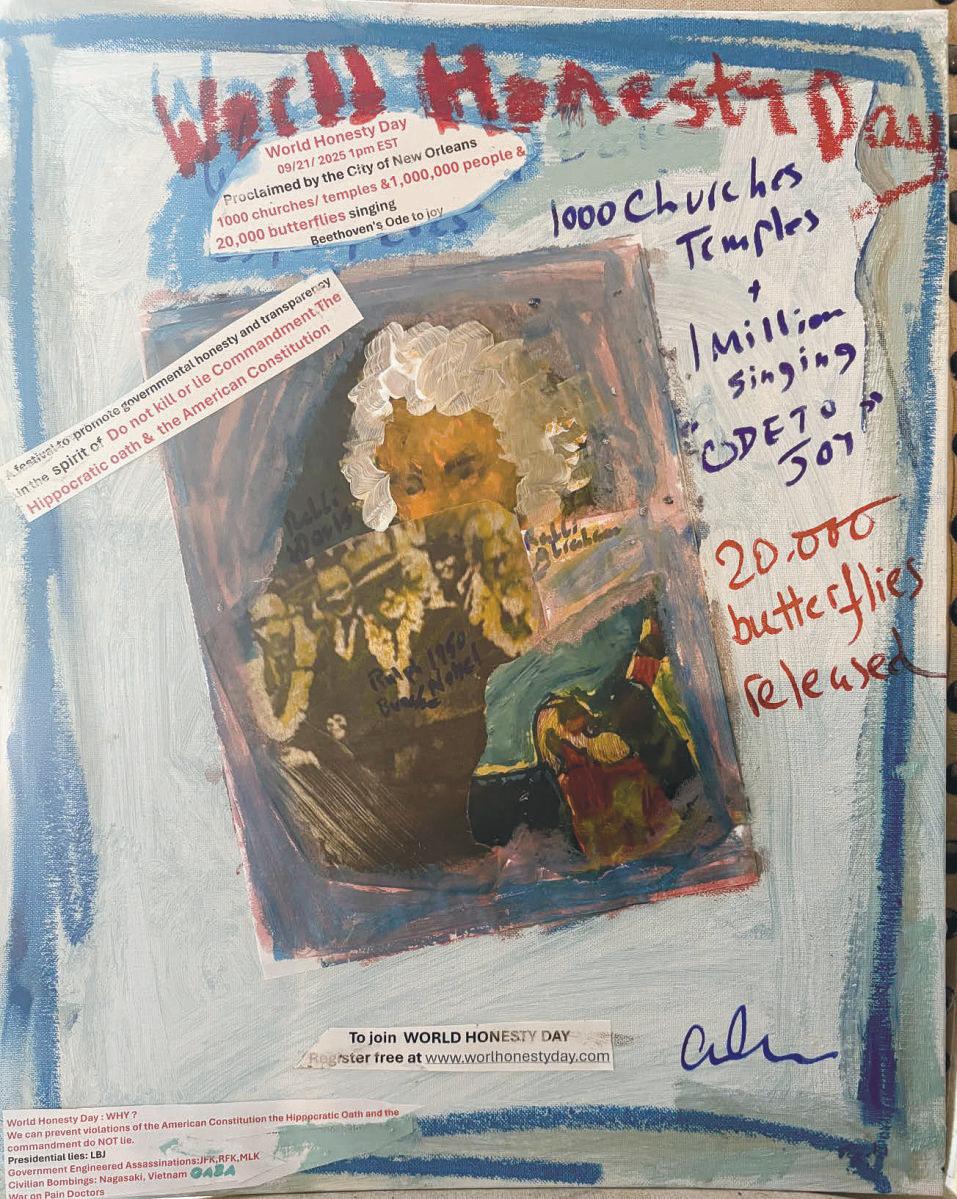 World Honesty Day
World Honesty Day
09/21/ 2025 1pm EST
Proclaimed by the City of New Orleans
1000 churches/ temples &1,000,000 people &
20,000 butterflies singing
Beethoven's Ode to joy
1000 Churches
Temples
+
1 Million
singing
"ODE TO
JOY"
A festival to promote governmental honesty and transparency
in the spirit of Do not kill or lie Commandment,The
Hippocratic oath & the American Constitution
20.000
butterflies
released
Rabbi
Rabbi
Abraham
Ralph 1950
Bunche Nobel
To join WORLD HONESTY DAY
Register free at www.worlhonestyday.com
World Honesty Day : WHY ?
We can prevent violations of the American Constitution the Hipppcratic Oath and the
commandment do NOT lie.
Presidential lies: LBJ
Government Engineered Assassinations:JFK,RFK,MLK
Civilian Bombings: Nagasaki, Vietnam GABA
War on Pain Doctors